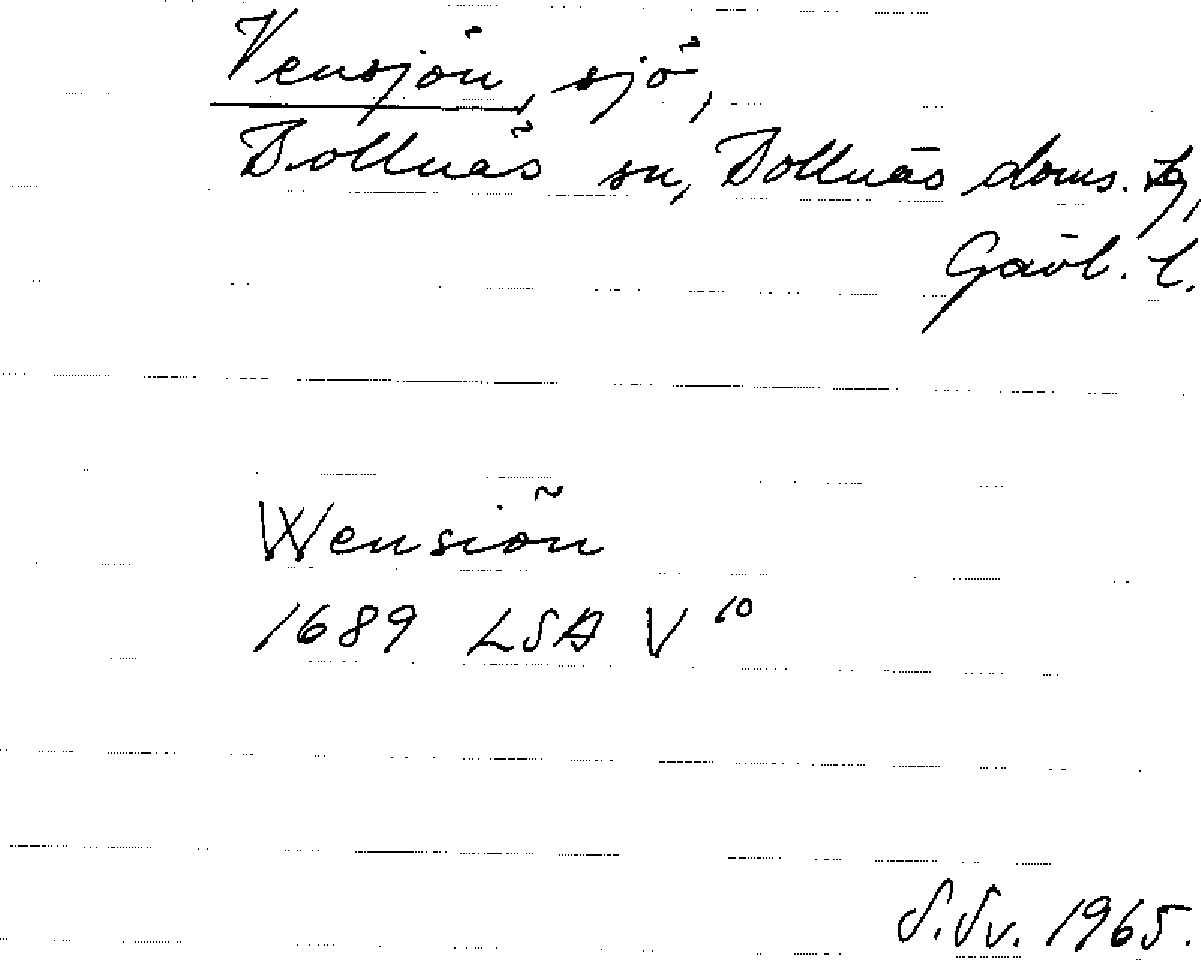 Vensjön, sjö,
Bollnäs sn, Bollnäs doms. tg,
Gävl. l.
Wensiön
1689 LSA V 10
S.Sv. 1965.